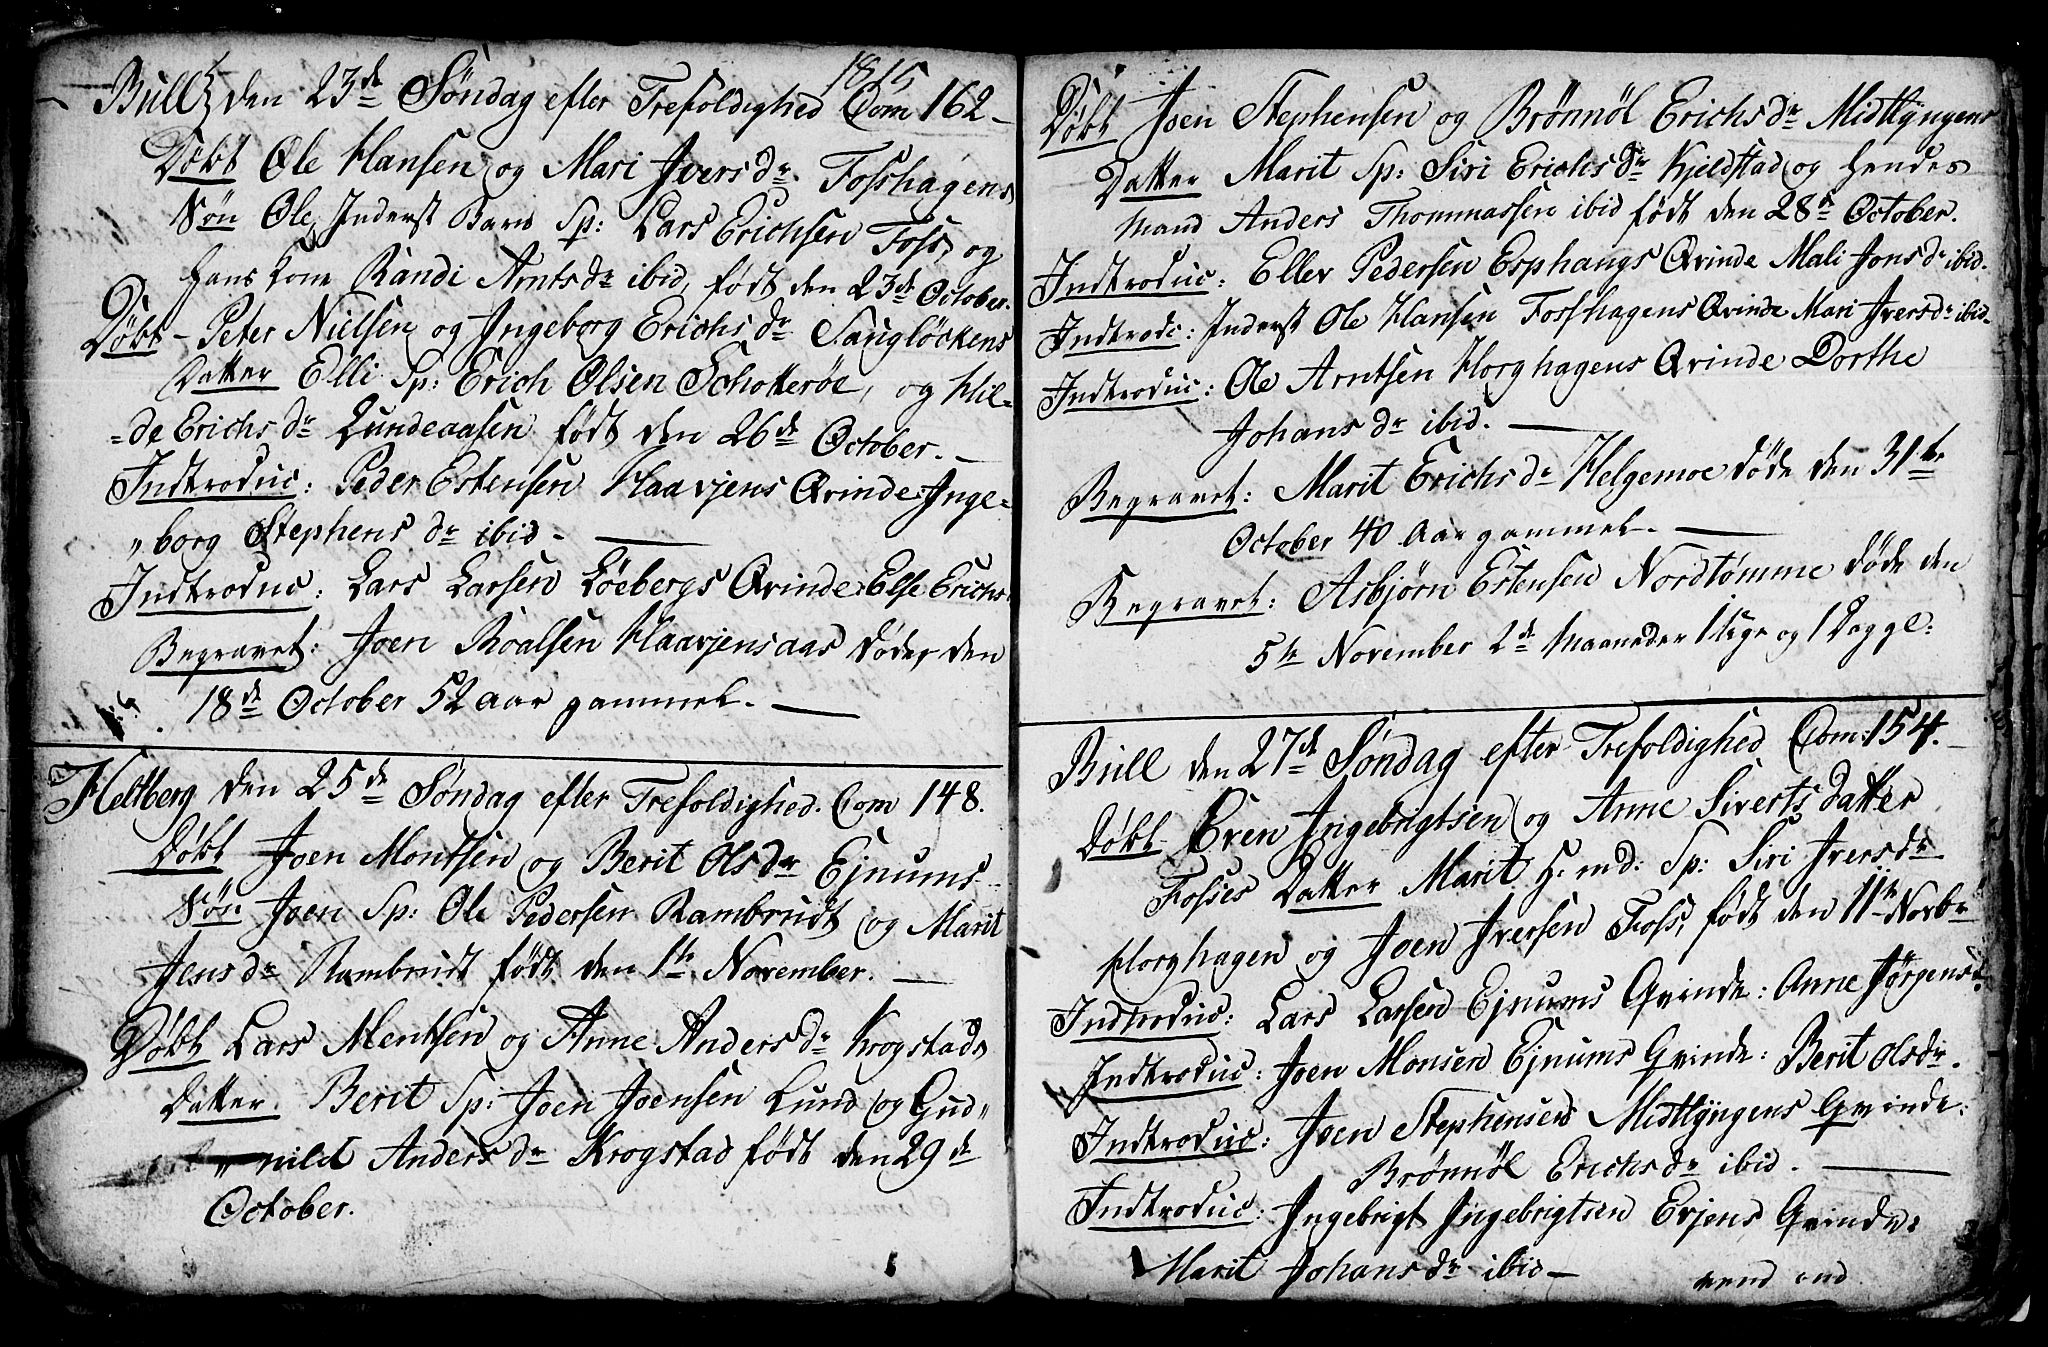 1815
Bull den 23de Søndag efter Trefoldighed Com 162 –
Døbt Ole Hansen og Mari Iversdr Fosshagens
Søn Ole, Inderst Barn Sp: Lars Erichsen Foss og
hans kone Randi Arntsdr ibid, født den 23de October.
Døbt – Peter Nielsen og Ingeborg Erichsdr Sauglöckens
Datter Elli Sp: Erich Olsen Schotterøe, og Hil=
=de Erichsdr Lundeaasen født den 26de October. –
Indtroduc: Peder Estensen Haavjens Qvinde Inge=
„borg Stephensdr ibid –
Indtroduc: Lars Larsen Löebergs Qvinde: Else Erichs.
Begravet: Joen Roalsen Haavjensaas døde, den
18de October 52 aar gammel. –
Heltberg den 25de Søndag efter Trefoldighed. Com 148.
Døbt Joen Montsen og Berit Olsdr Ejnums
Søn Joen Sp: Ole Pedersen Rambrudt og Marit
Jensdr Rambrudt født den 1te November. –
Døbt Lars Mentsen og Anne Andersdr Krogstads
Datter Berit Sp: Joen Joensen Lund og Gud„
„nild Andersdr Krogstad født den 29de
October.
Døbt Joen Stephensen og Brönnöl Erichsdr Midtlyngens
Datter Marit Sp: Siri Erichsdr Kjeldstad og hendes
Mand Anders Thommassen ibid født den 28de October.
Indtroduc: Eller Pedersen Esphaugs Qvinde Mali Jonsdr ibid.
Indtroduc: Inderst Ole Hansen Fosshagens Qvinde Mari Iversdr ibid.
Indtroduc: Ole Arntsen Horghagens Qvinde Dorthe
Johansdr ibid. –
Begravet: Marit Erichsdr Helgemoe døde den 31te
October 40 Aar gammel. –
Begravet: Asbjørn Estensen Nordtømme døde den
5te November 2de Maaneder 1 Uge og 1 Dag gl:
Bull den 27de Søndag efter Trefoldighed Com: 154. –
Døbt Even Ingebrigtsen og Anne Siverts datter
Fosses Datter Marit H. md: Sp: Siri Iversdr
Horghagen og Joen Iversen Foss, født den 11te Novbr
Indtroduc: Lars Larsen Ejnums Qvinde: Anne Jørgensd.
Indtroduc: Joen Monsen Ejnums Qvinde: Berit Olsdr.
Indtroduc: Joen Stephensens Midtlyngens Qvinde:
Brønnöl Erichsdr ibid. –
Indtroduc: Ingebrigt Ingebrigtsen Evjens Qvinde:
Marit Johansdr ibid –
vend om